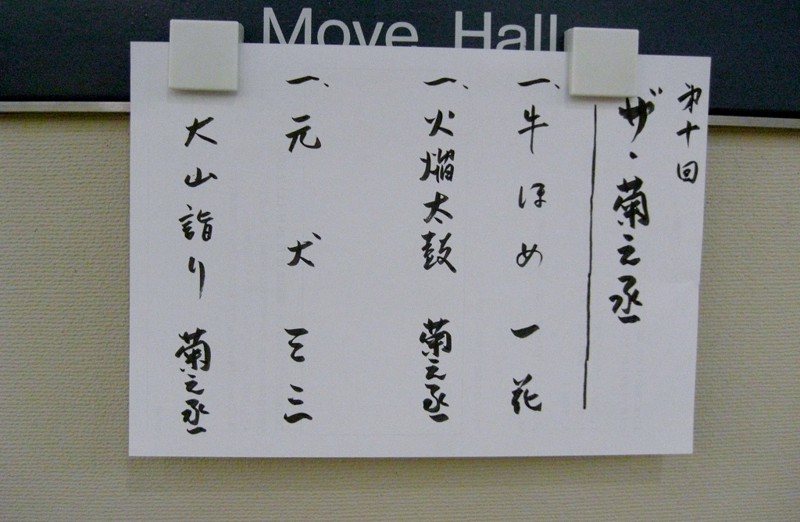 Move Hall
第十回
ザ・菊之丞
一、牛ほめ 一花
一、火焔太鼓 菊之丞
一、元犬 三三
大山詣り 菊之丞